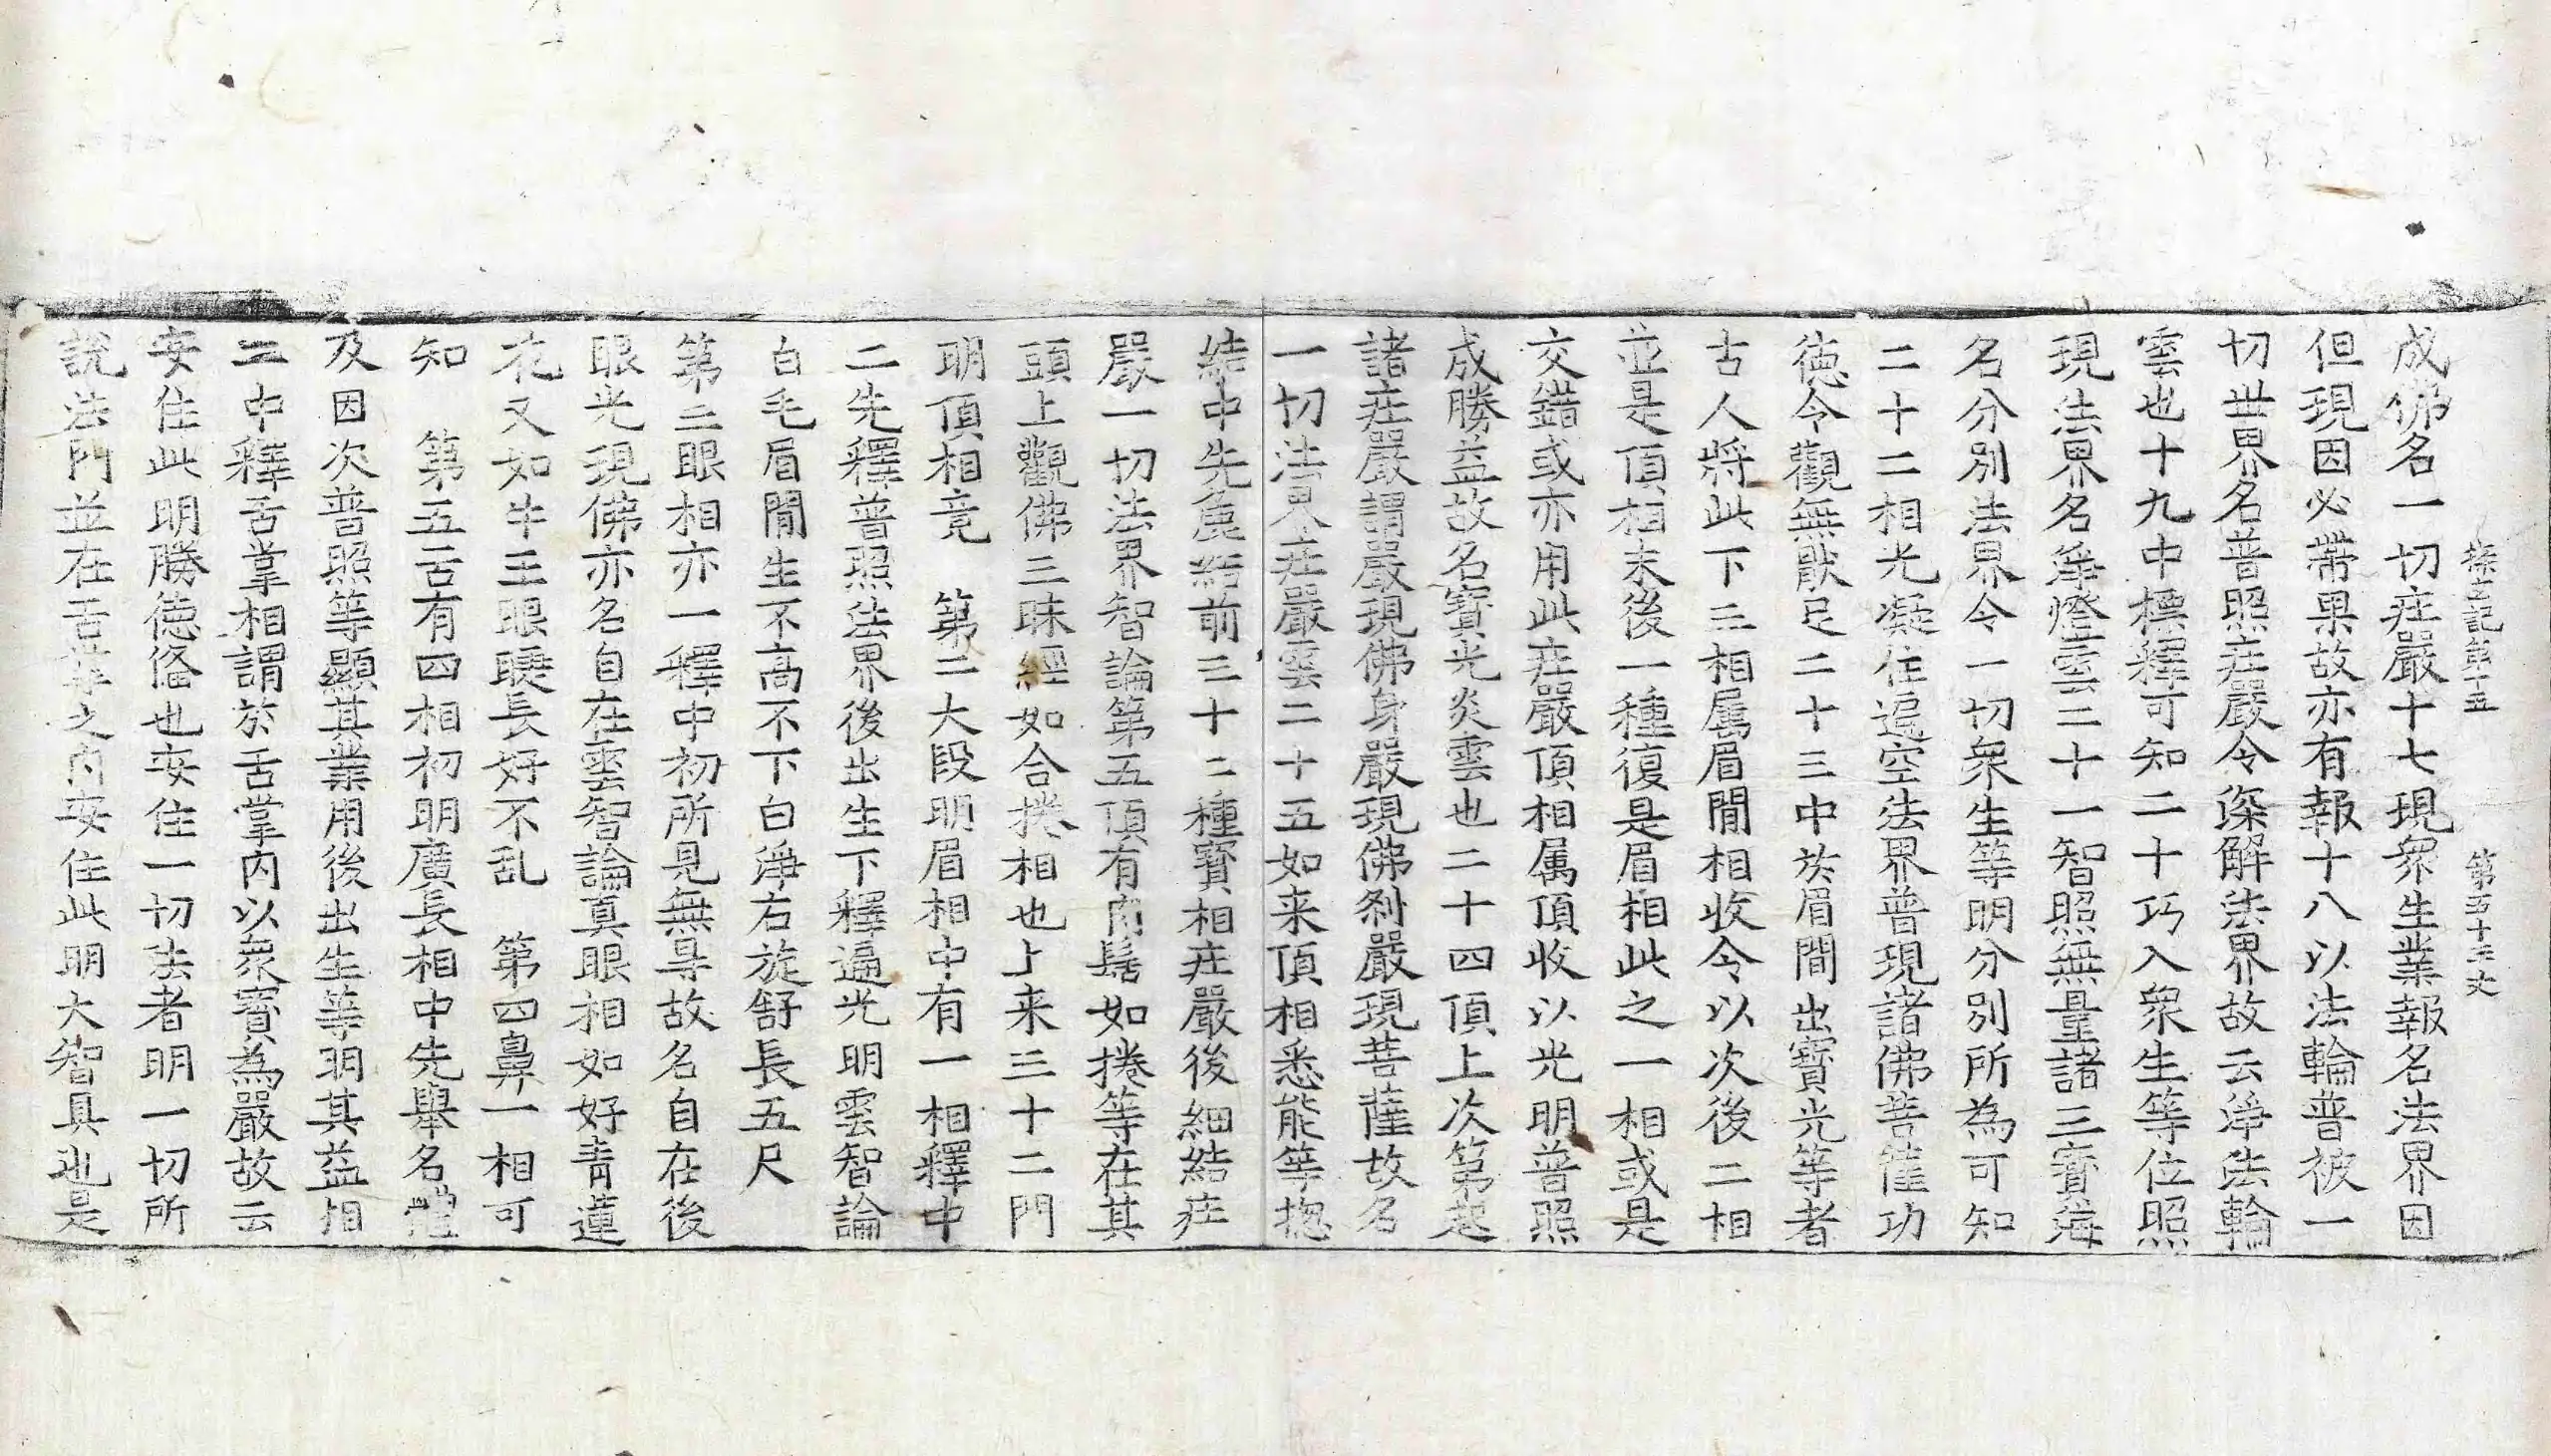 探玄記第十五　第五十三丈
成佛名一切庄嚴十七現衆生業報名法界因
但現因必帶果故亦有報十八以法輪普被一
切世界名普照庄嚴令深解法界故云淨法輪
雲也十九中標釋可知二十巧入衆生等位照
現法界名淨燈雲二十一智照無量諸三寶海
名分別法界令一切衆生等明分別所為可知
二十二相光凝住遍空法界普現諸佛菩薩功
徳令觀無猒足二十三中於眉間出寶光等者
古人將此下三相属眉間相收令以次後二相
並是頂相末後一種復是眉相此之一相或是
交錯或亦用此庄嚴頂相属頂收以光明普照
成勝益故名寶光炎雲也二十四頂上次第起
諸庄嚴謂嚴現佛身嚴現佛刹嚴現菩薩故名
一切法界庄嚴雲二十五如来頂相悉能等揔
結中先廣結前三十二種寶相庄嚴後細結庄
嚴一切法界智論第五頂有肉髻如捲等在其
頭上觀佛三昧經如合捲相也上来三十二門
明頂相竟　第二大段明眉相中有一相釋中
二先釋普照法界後出生下釋遍光明雲智論
白毛眉間生不高不下白淨右旋舒長五尺
第三眼相亦一釋中初所見無㝵故名自在後
眼光現佛亦名自在雲智論真眼相如好青蓮
花又如牛王眼睫長好不乱　第四鼻一相可
知　第五舌有四相初明廣長相中先舉名體
及因次普照等顯其業用後出生等明其益相
二中釋舌掌相謂於舌掌內以衆寶為嚴故云
安住此明勝徳俻也安住一切法者明一切所
說法門並在舌掌之內安住此明大智具也是